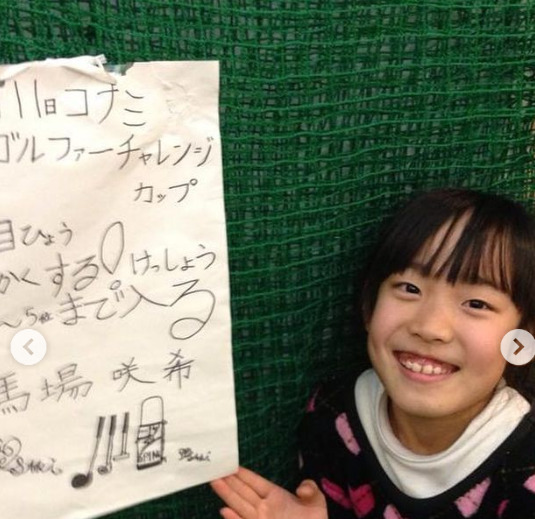 11日コナミ
ゴルファーチャレンジ
カップ
目ひょう
かくする! けっしょう
〜5位まで入る
馬場 咲希
PING